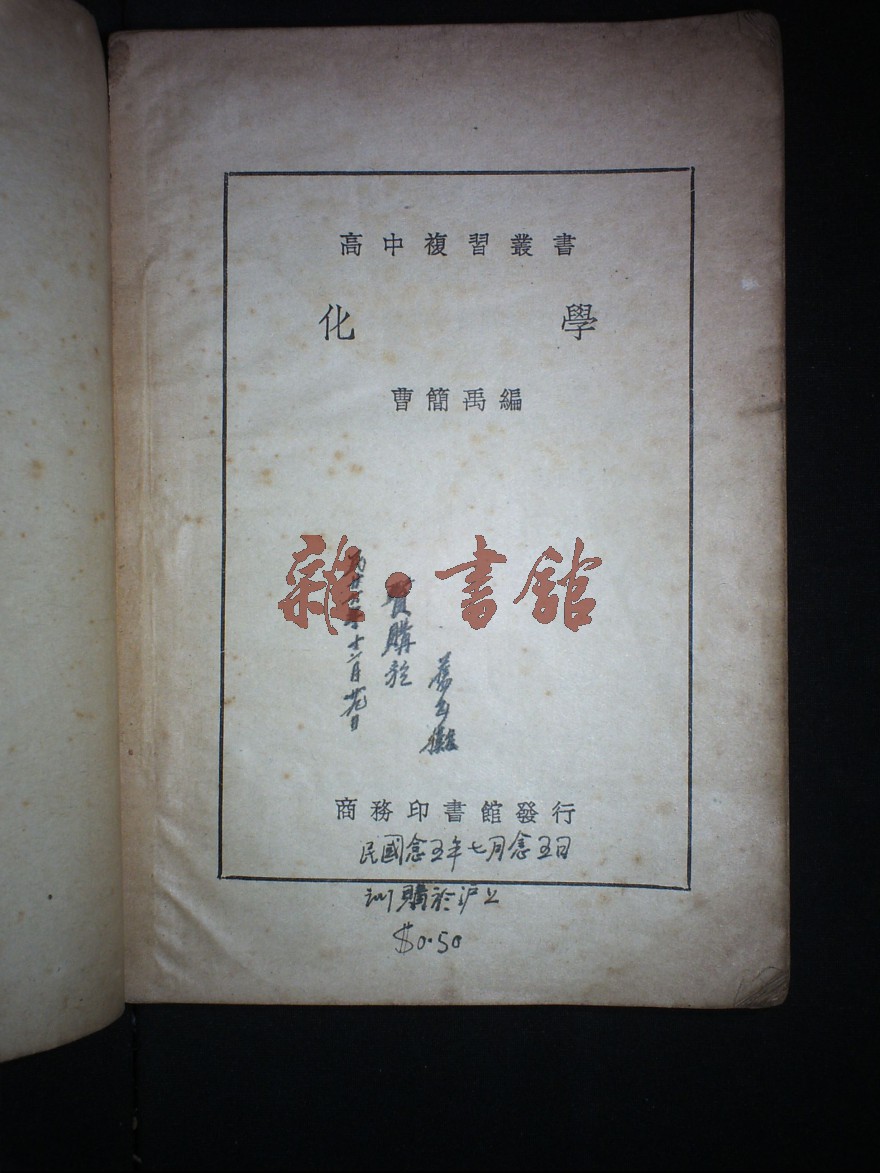 高中複習叢書
化學
曹簡禹編
雜·書館
購於
舊書攤
商務印書館發行
民國念五年七月念五日
購於沪上
$0.50